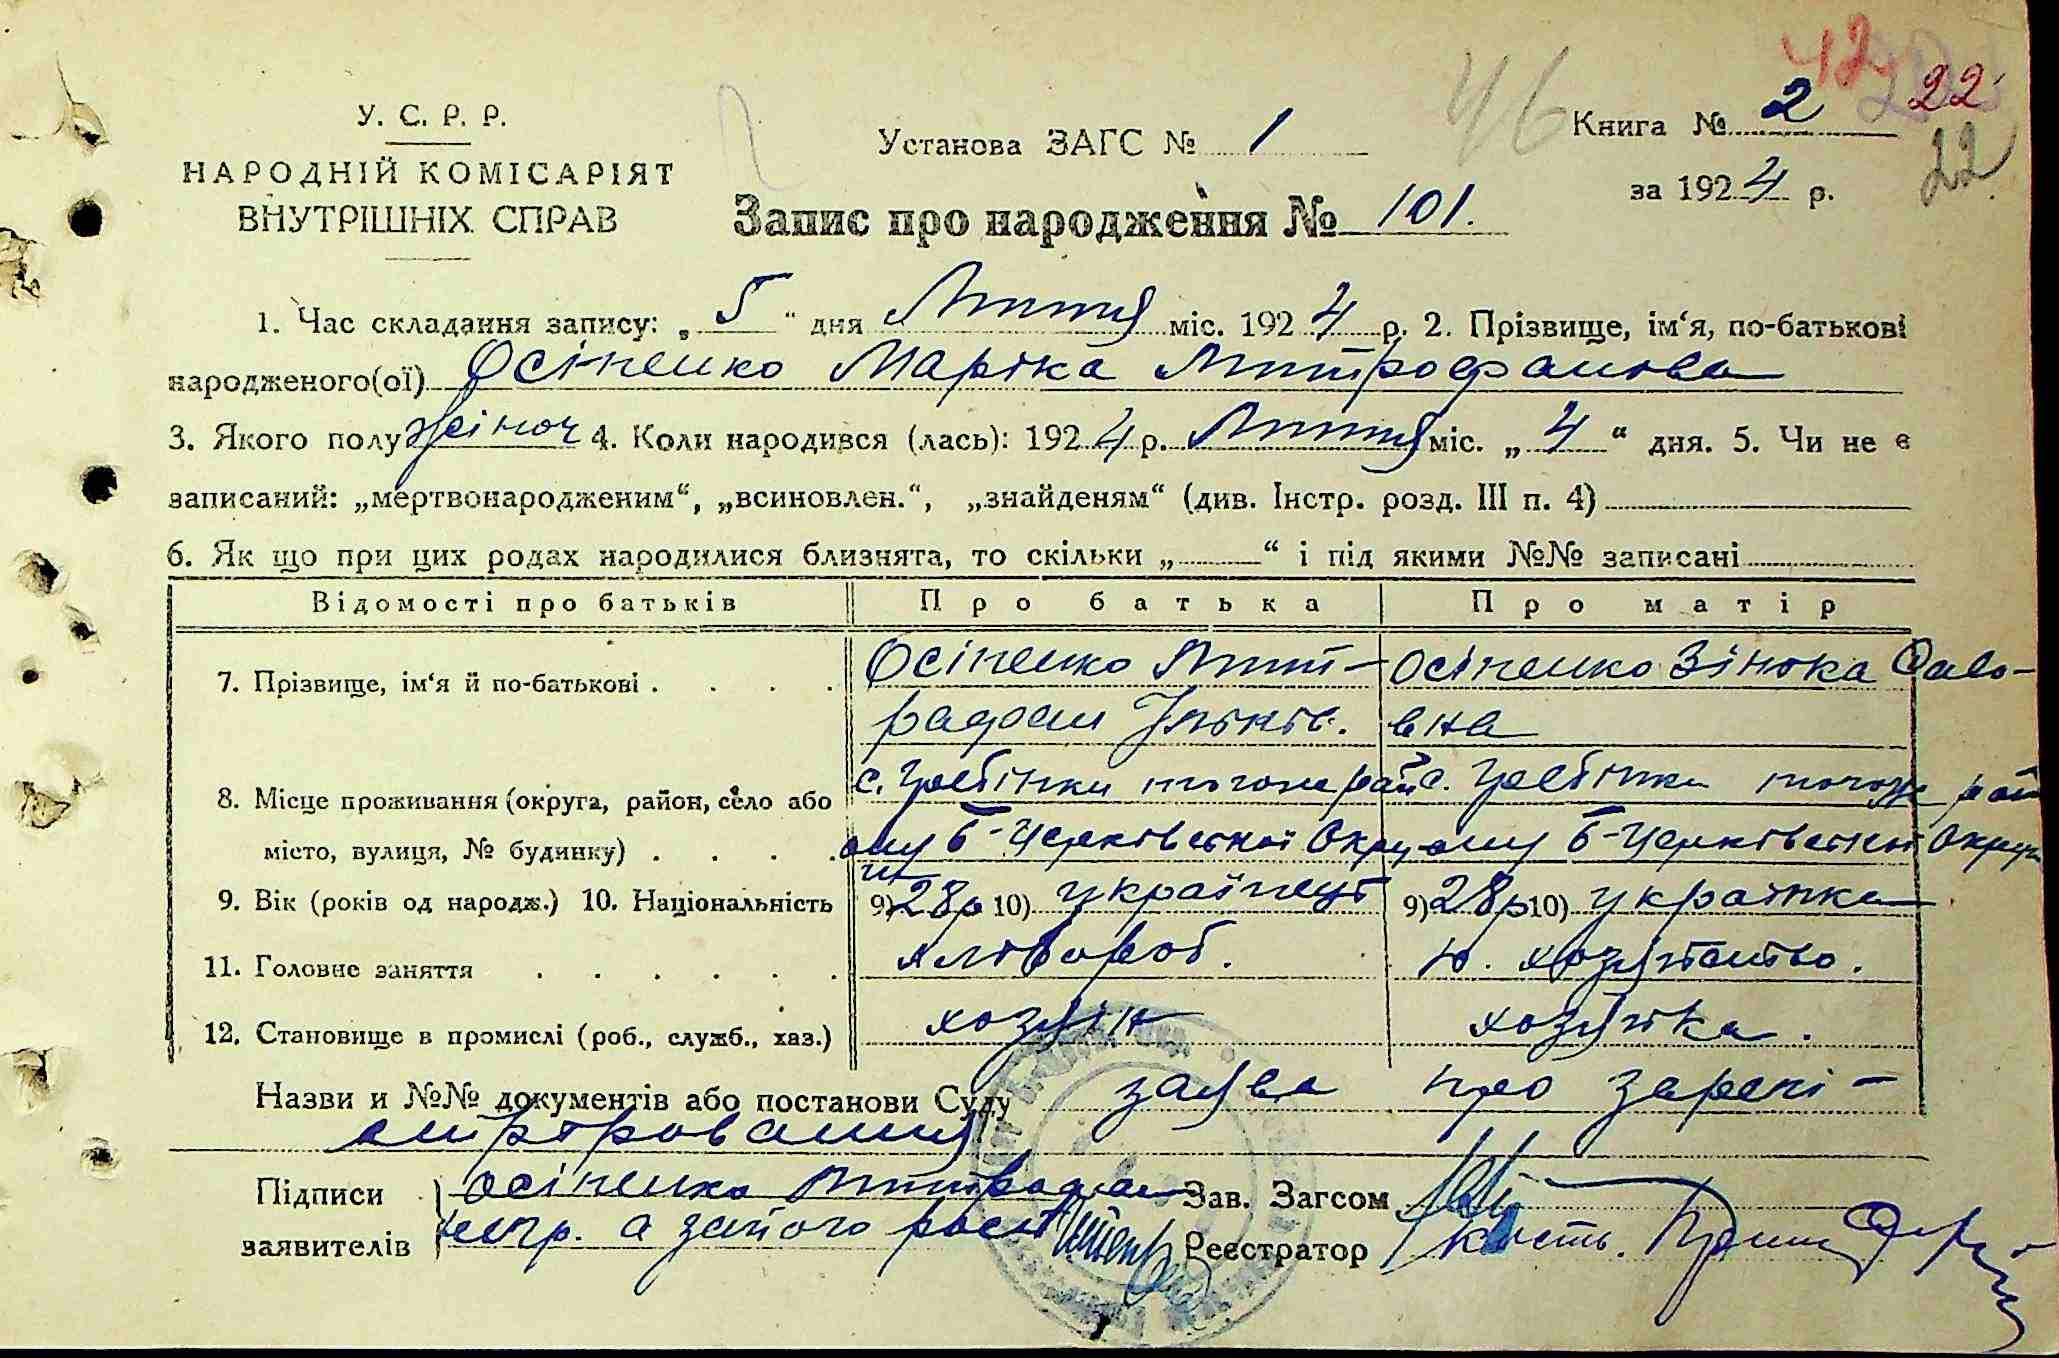 42 22
46
У. С. Р. Р.
НАРОДНІЙ КОМІСАРІЯТ
ВНУТРІШНІХ СПРАВ
Установа ЗАГС № 1
Книга № 2
за 1924 р.
22
Запис про народження № 101.
1. Час складання запису: „5“ дня Липня міс. 1924 р. 2. Прізвище, ім‘я, по-батькові
народженого(ої) Осіпенко Марійка Митрофанова
3. Якого полу жіноч 4. Коли народився (лась): 1924 р. Липня міс. „4“ дня. 5. Чи не є
записаний: „мертвонародженим“, „всиновлен.“, „знайденям“ (див. Інстр. розд. III п. 4)
6. Як що при цих родах народилися близнята, то скільки „ “ і під якими №№ записані
Відомості про батьків Про батька Про матір
7. Прізвище, ім‘я й по-батькові . . . . Осіпенко Мит- Осіпенко Зінька Саво-
рафан Ільків. вна
8. Місце проживання (округа, район, село або с. Гребінки тогож рай с. Гребінки тогож рай
місто, вулиця, № будинку) . . . . ону Б-Церківської Округи ону Б-Церківської Округи
9. Вік (років од народж.) 10. Національність 9) 28р 10) українець 9) 28р 10) українка
11. Головне заняття . . . . . . хлібороб. хозяйство.
12. Становище в промислі (роб., служб., хаз.) хозяїн хозяйка.
Назви и №№ документів або постанови Суду заява про зареєі-
стріровання
Підписи Осіпенко Митрофан Зав. Загсом
заявителів непр. а за його росп Реєстратор